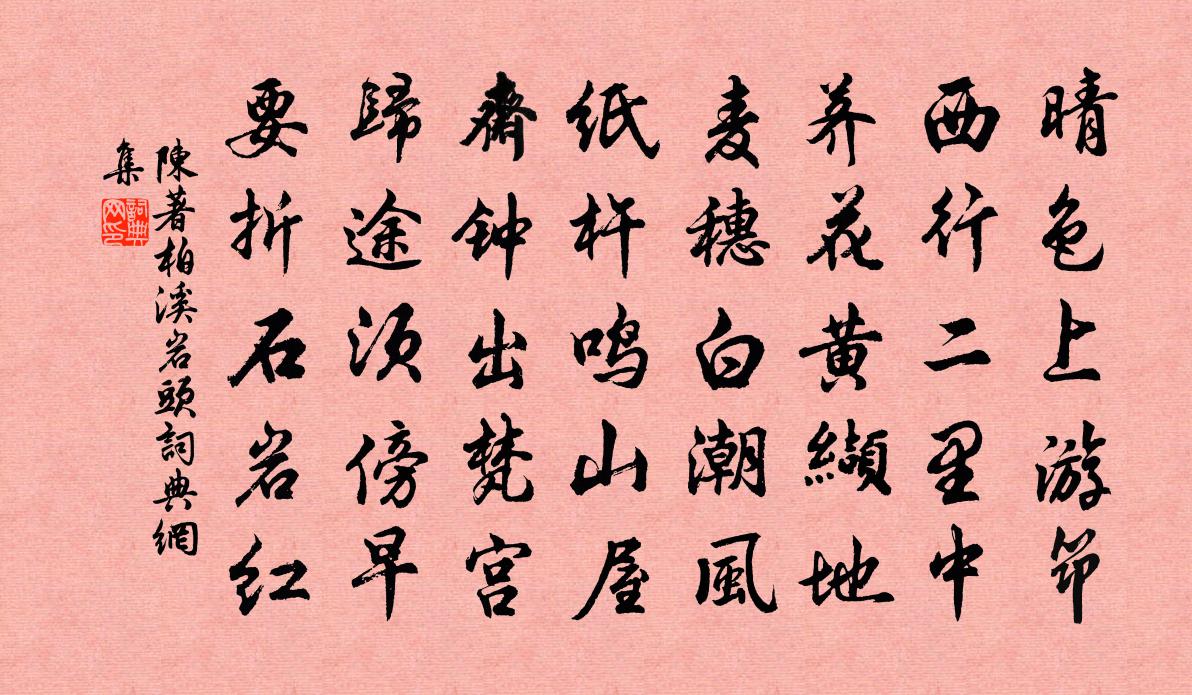 晴色上游筇
西行二里中
荞花黄纈地
麦穗白潮風
紙杵鸣山屋
齋钟出梵宫
歸途须傍早
要折石岩红
陳著柏溪岩頭詞典網
集
詞典
网印